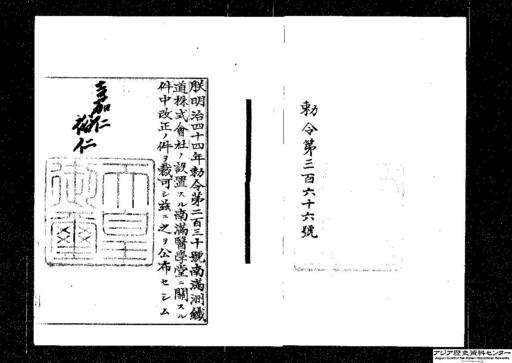 勅令第三百六十六號
朕明治四十四年勅令第二百三十號南滿洲鐵
道株式會社ノ設置スル南滿醫學堂ニ關スル
件中改正ノ件ヲ裁可シ茲ニ之ヲ公布セシム
嘉仁
裕仁
天皇
御璽
アジア歴史資料センター
Japan Center for Asian Historical Records